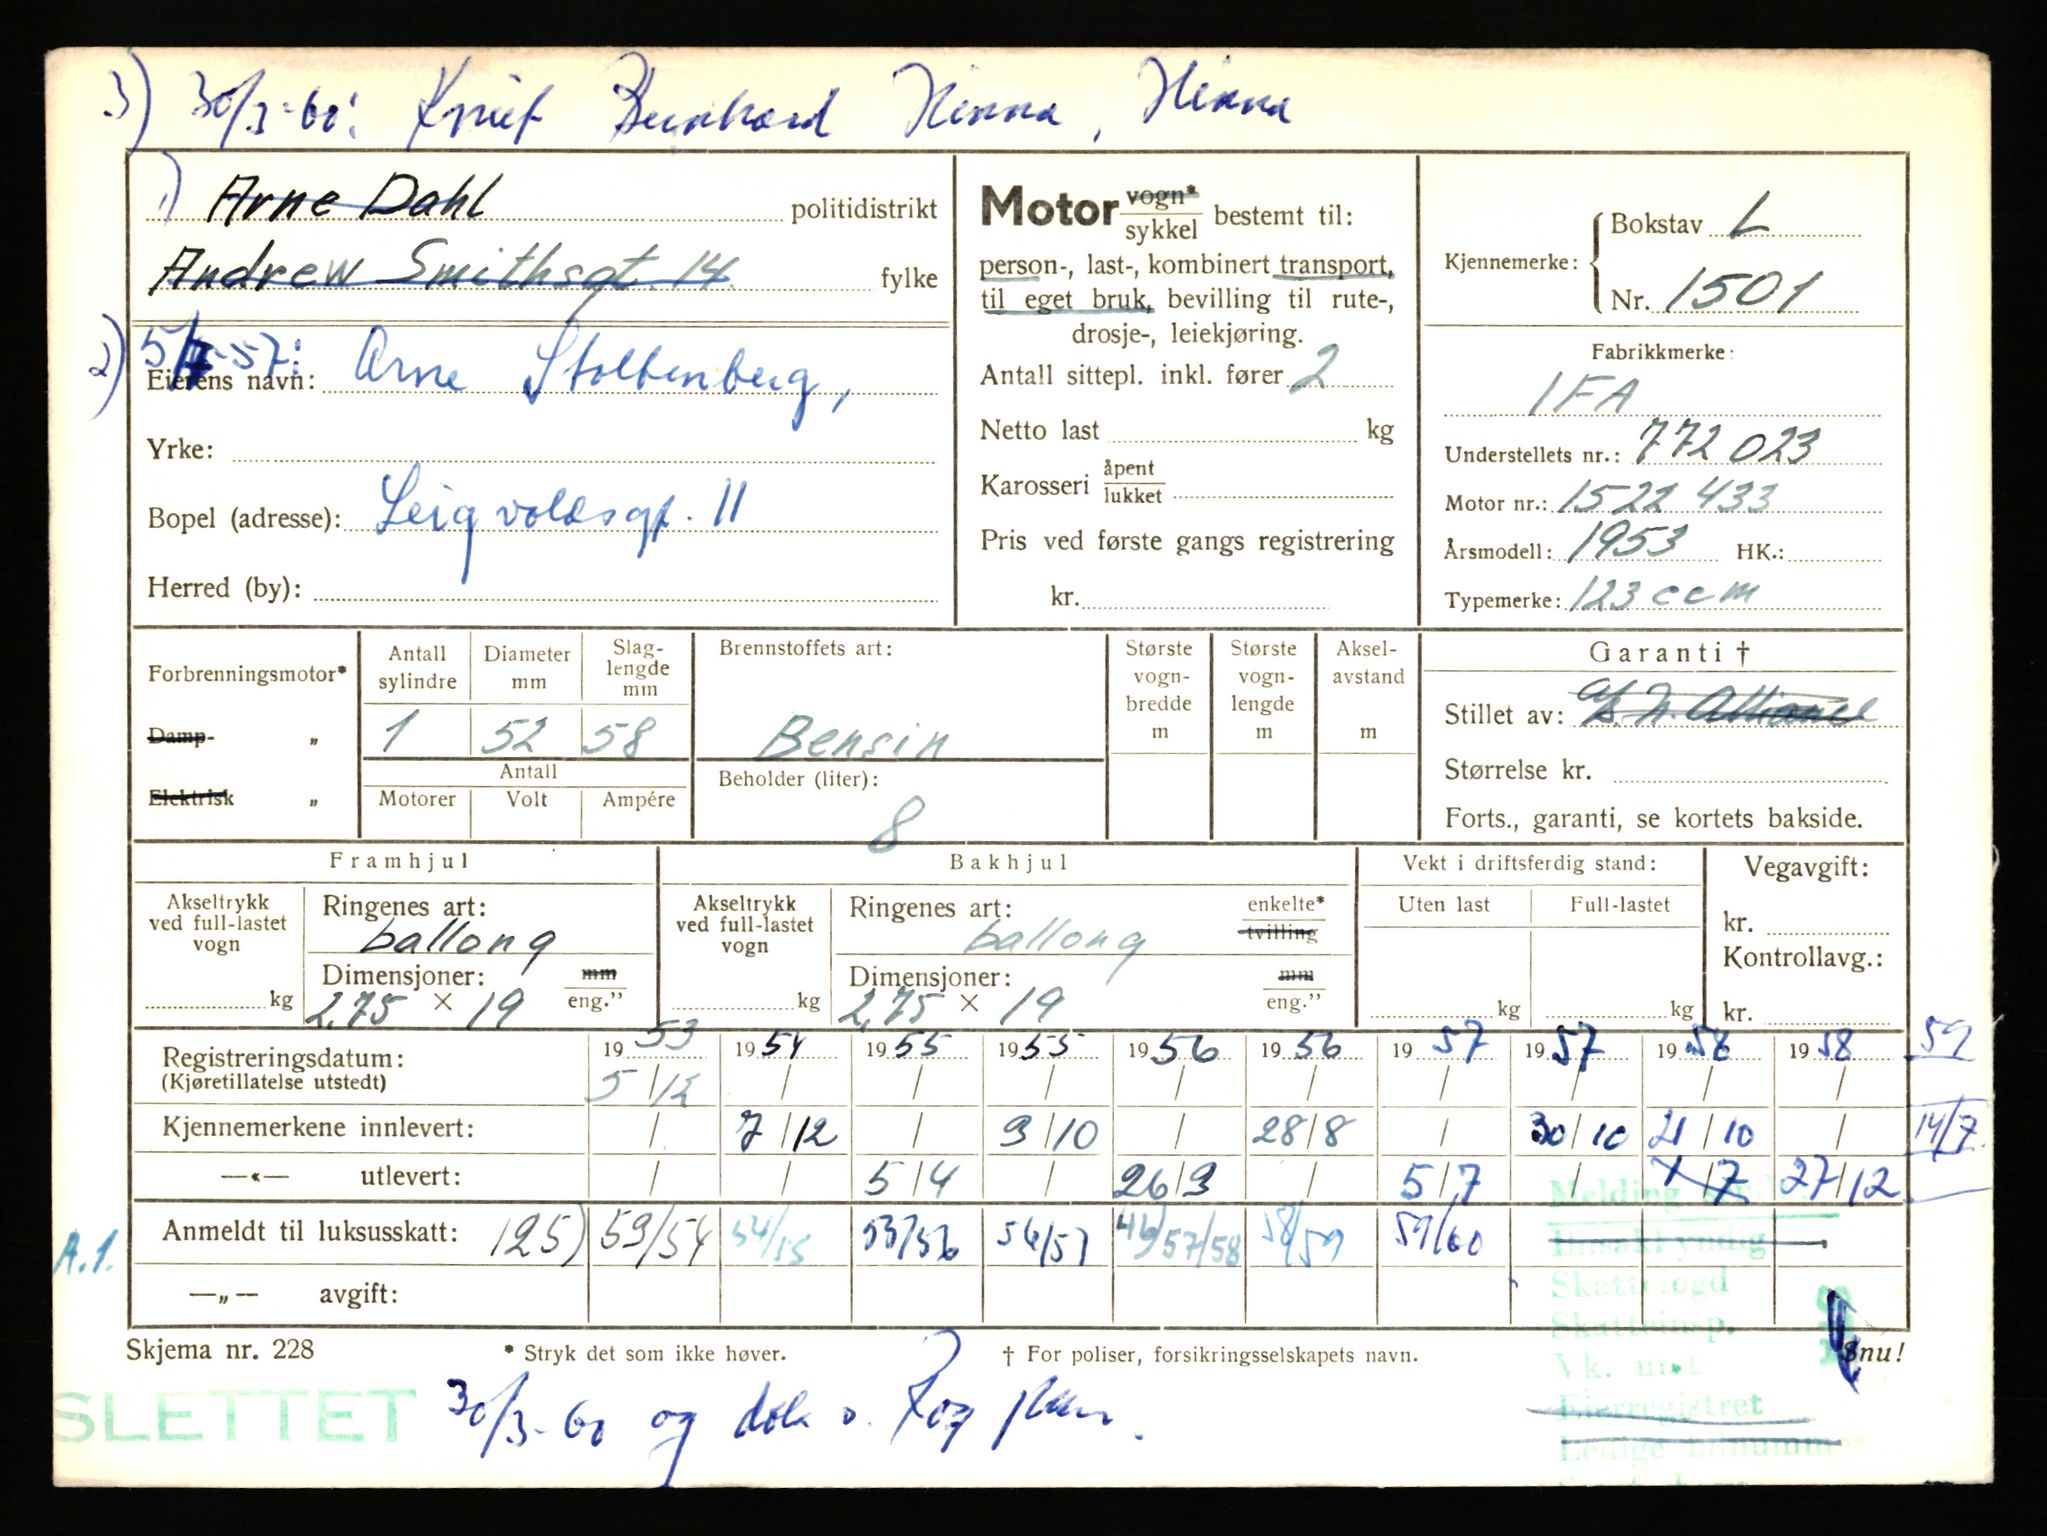 3) 30/3-60: Knut Bernhard Hinna, Hinna
1) Arne Dahl politidistrikt
Andrew Smithsgt. 14 fylke
2) 5/7-57:
Eierens navn: Arne Stoltenberg,
Yrke:
Bopel (adresse): Leigvoldsgt. 11
Herred (by):
Motor vogn* sykkel bestemt til:
person-, last-, kombinert transport,
til eget bruk, bevilling til rute-,
drosje-, leiekjøring.
Antall sittepl. inkl. fører 2
Netto last kg
Karosseri åpent lukket
Pris ved første gangs registrering
kr.
Kjennemerke: Bokstav L
Nr. 1501
Fabrikkmerke:
IFA
Understellets nr.: 772023
Motor nr.: 1522433
Årsmodell: 1953 HK.:
Typemerke: 123 ccm
Forbrenningsmotor*
Damp- „
Elektrisk „
Antall sylindre
Diameter mm
Slag-lengde mm
1 52 58
Antall
Motorer Volt Ampére
Brennstoffets art:
Bensin
Beholder (liter):
8
Største vogn-bredde m
Største vogn-lengde m
Aksel-avstand m
Garanti †
Stillet av:
Størrelse kr.
Forts., garanti, se kortets bakside.
Framhjul
Akseltrykk ved full-lastet vogn
kg
Ringenes art:
ballong
Dimensjoner: mm
2,75 × 19 eng.”
Bakhjul
Akseltrykk ved full-lastet vogn
kg
Ringenes art: enkelte*
ballong tvilling
Dimensjoner: mm
2,75 × 19 eng.”
Vekt i driftsferdig stand:
Uten last Full-lastet
kg kg
Vegavgift:
kr.
Kontrollavg.:
kr.
Registreringsdatum: 1953 1954 1955 1955 1956 1956 1957 1957 1958 1958 59
(Kjøretillatelse utstedt) 5/12 / / / / / / / / /
Kjennemerkene innlevert: / 7/12 / 3/10 / 28/8 / 30/10 21/10 / 14/7
—«— utlevert: / / 5/4 / 26/3 / 5/7 / 27/12
Anmeldt til luksusskatt: 125) 53/54 54/55 55/56 56/57 57/58 58/59 59/60
A.1.
—„— avgift:
Skattefogd
Skatteinsp.
Vk. utst
Eierregistret
Skjema nr. 228
* Stryk det som ikke høver.
† For poliser, forsikringsselskapets navn.
Snu!
SLETTET
30/3-60 og